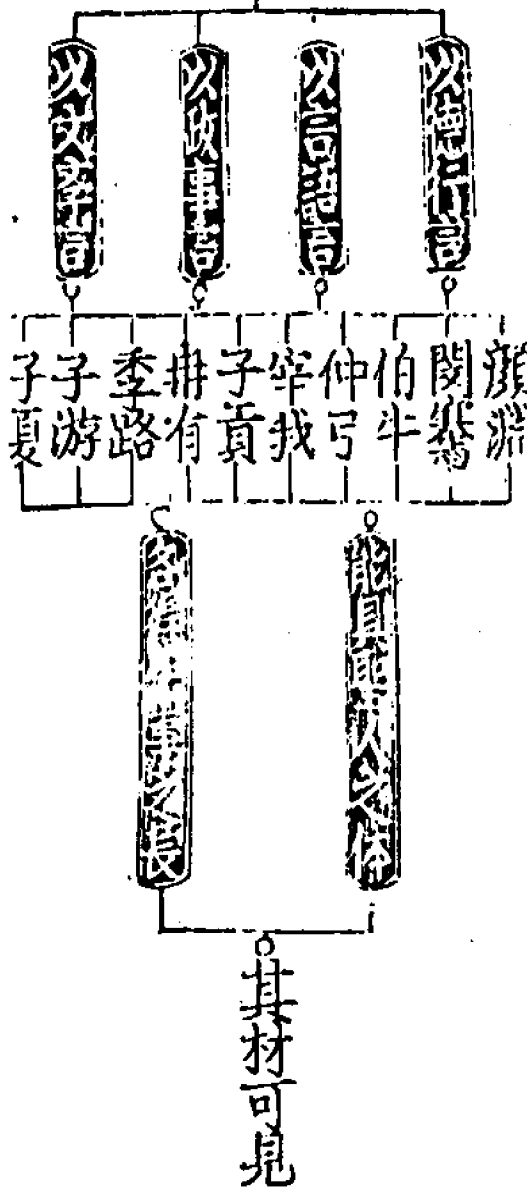 以德行言
以言語言
以政事言
以文斈言
顏淵
閔騫
伯牛
仲弓
宰我
子貢
冉有
季路
子游
子夏
能具聖人之体
各一事之長
其材可見